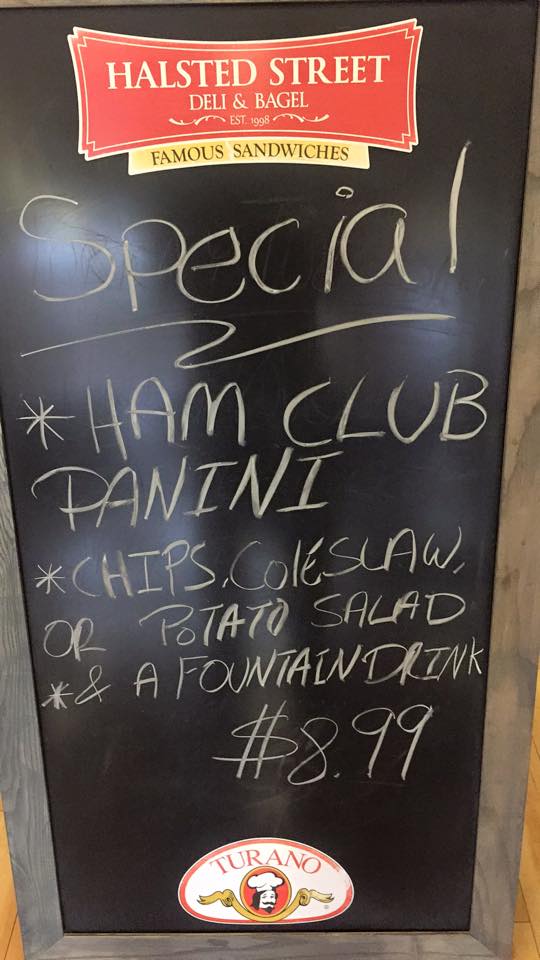 HALSTED STREET
DELI & BAGEL
EST. 1998
FAMOUS SANDWICHES
Special
* HAM CLUB
PANINI
* CHIPS, COLESLAW,
OR POTATO SALAD
* & A FOUNTAIN DRINK
$8.99
TURANO